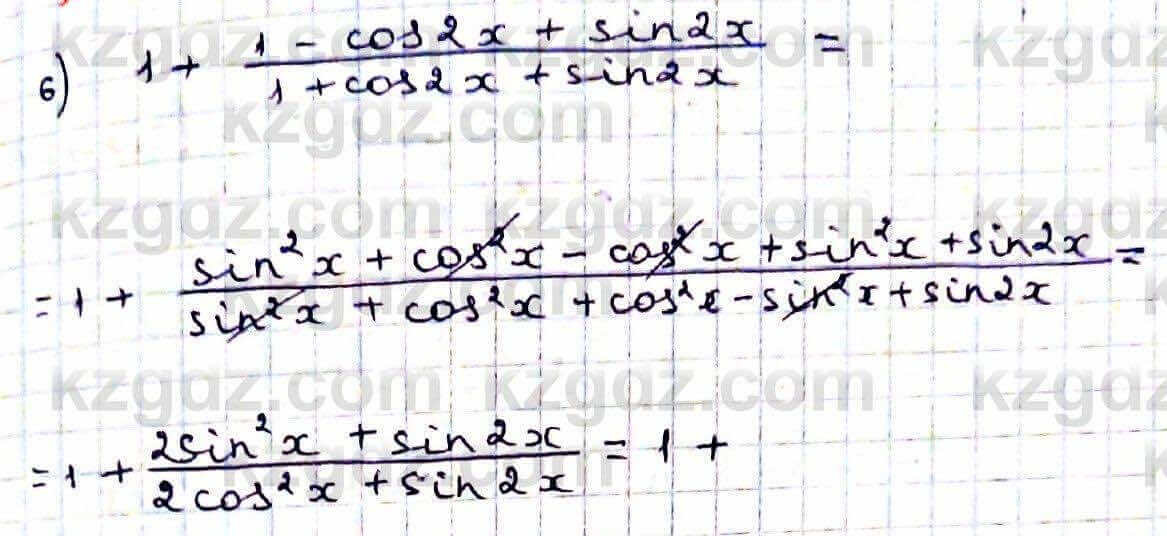 6) 1 + (1 - cos2x + sin2x)/(1 + cos2x + sin2x) =
= 1 + (sin²x + cos²x - cos²x + sin²x + sin2x)/(sin²x + cos²x + cos²x - sin²x + sin2x) =
= 1 + (2sin²x + sin2x)/(2cos²x + sin2x) = 1 +
kzgdz.com kzgdz.com kzgdz
kzgdz.com
kzgdz.com kzgdz.com kzgdz
kzgdz.com kzgdz.com kzgdz